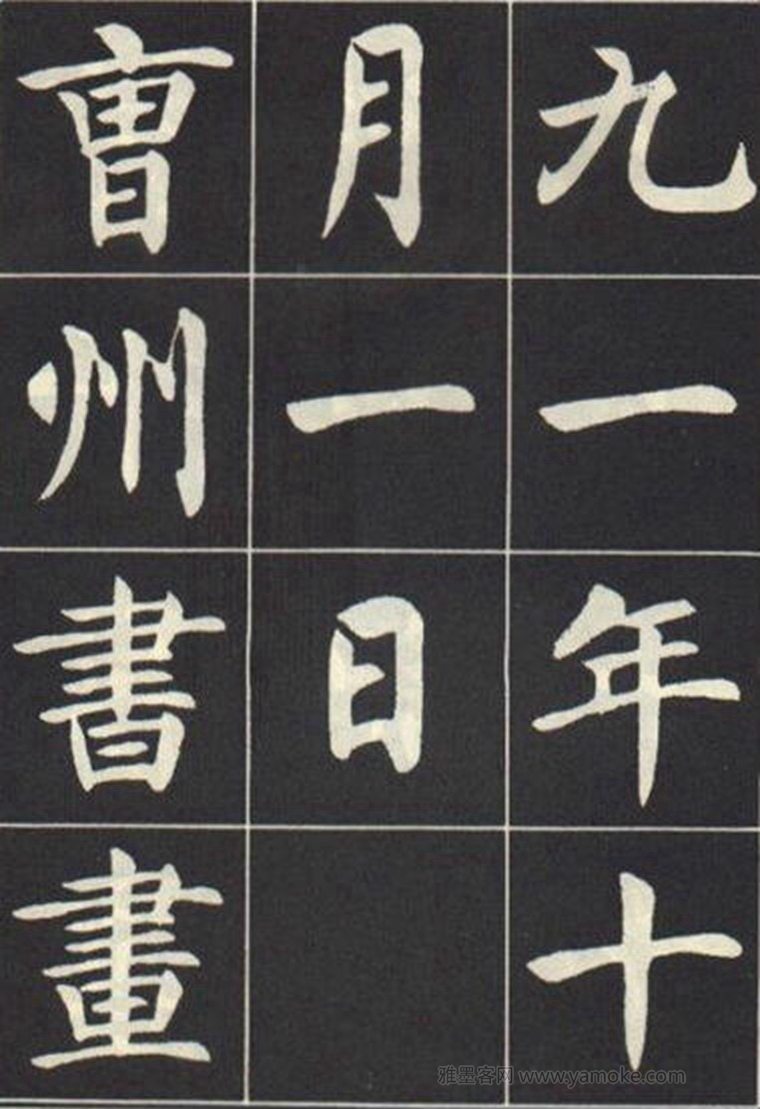 九一年十
月一日
曺州書畫
雅墨客网 www.yamoke.com